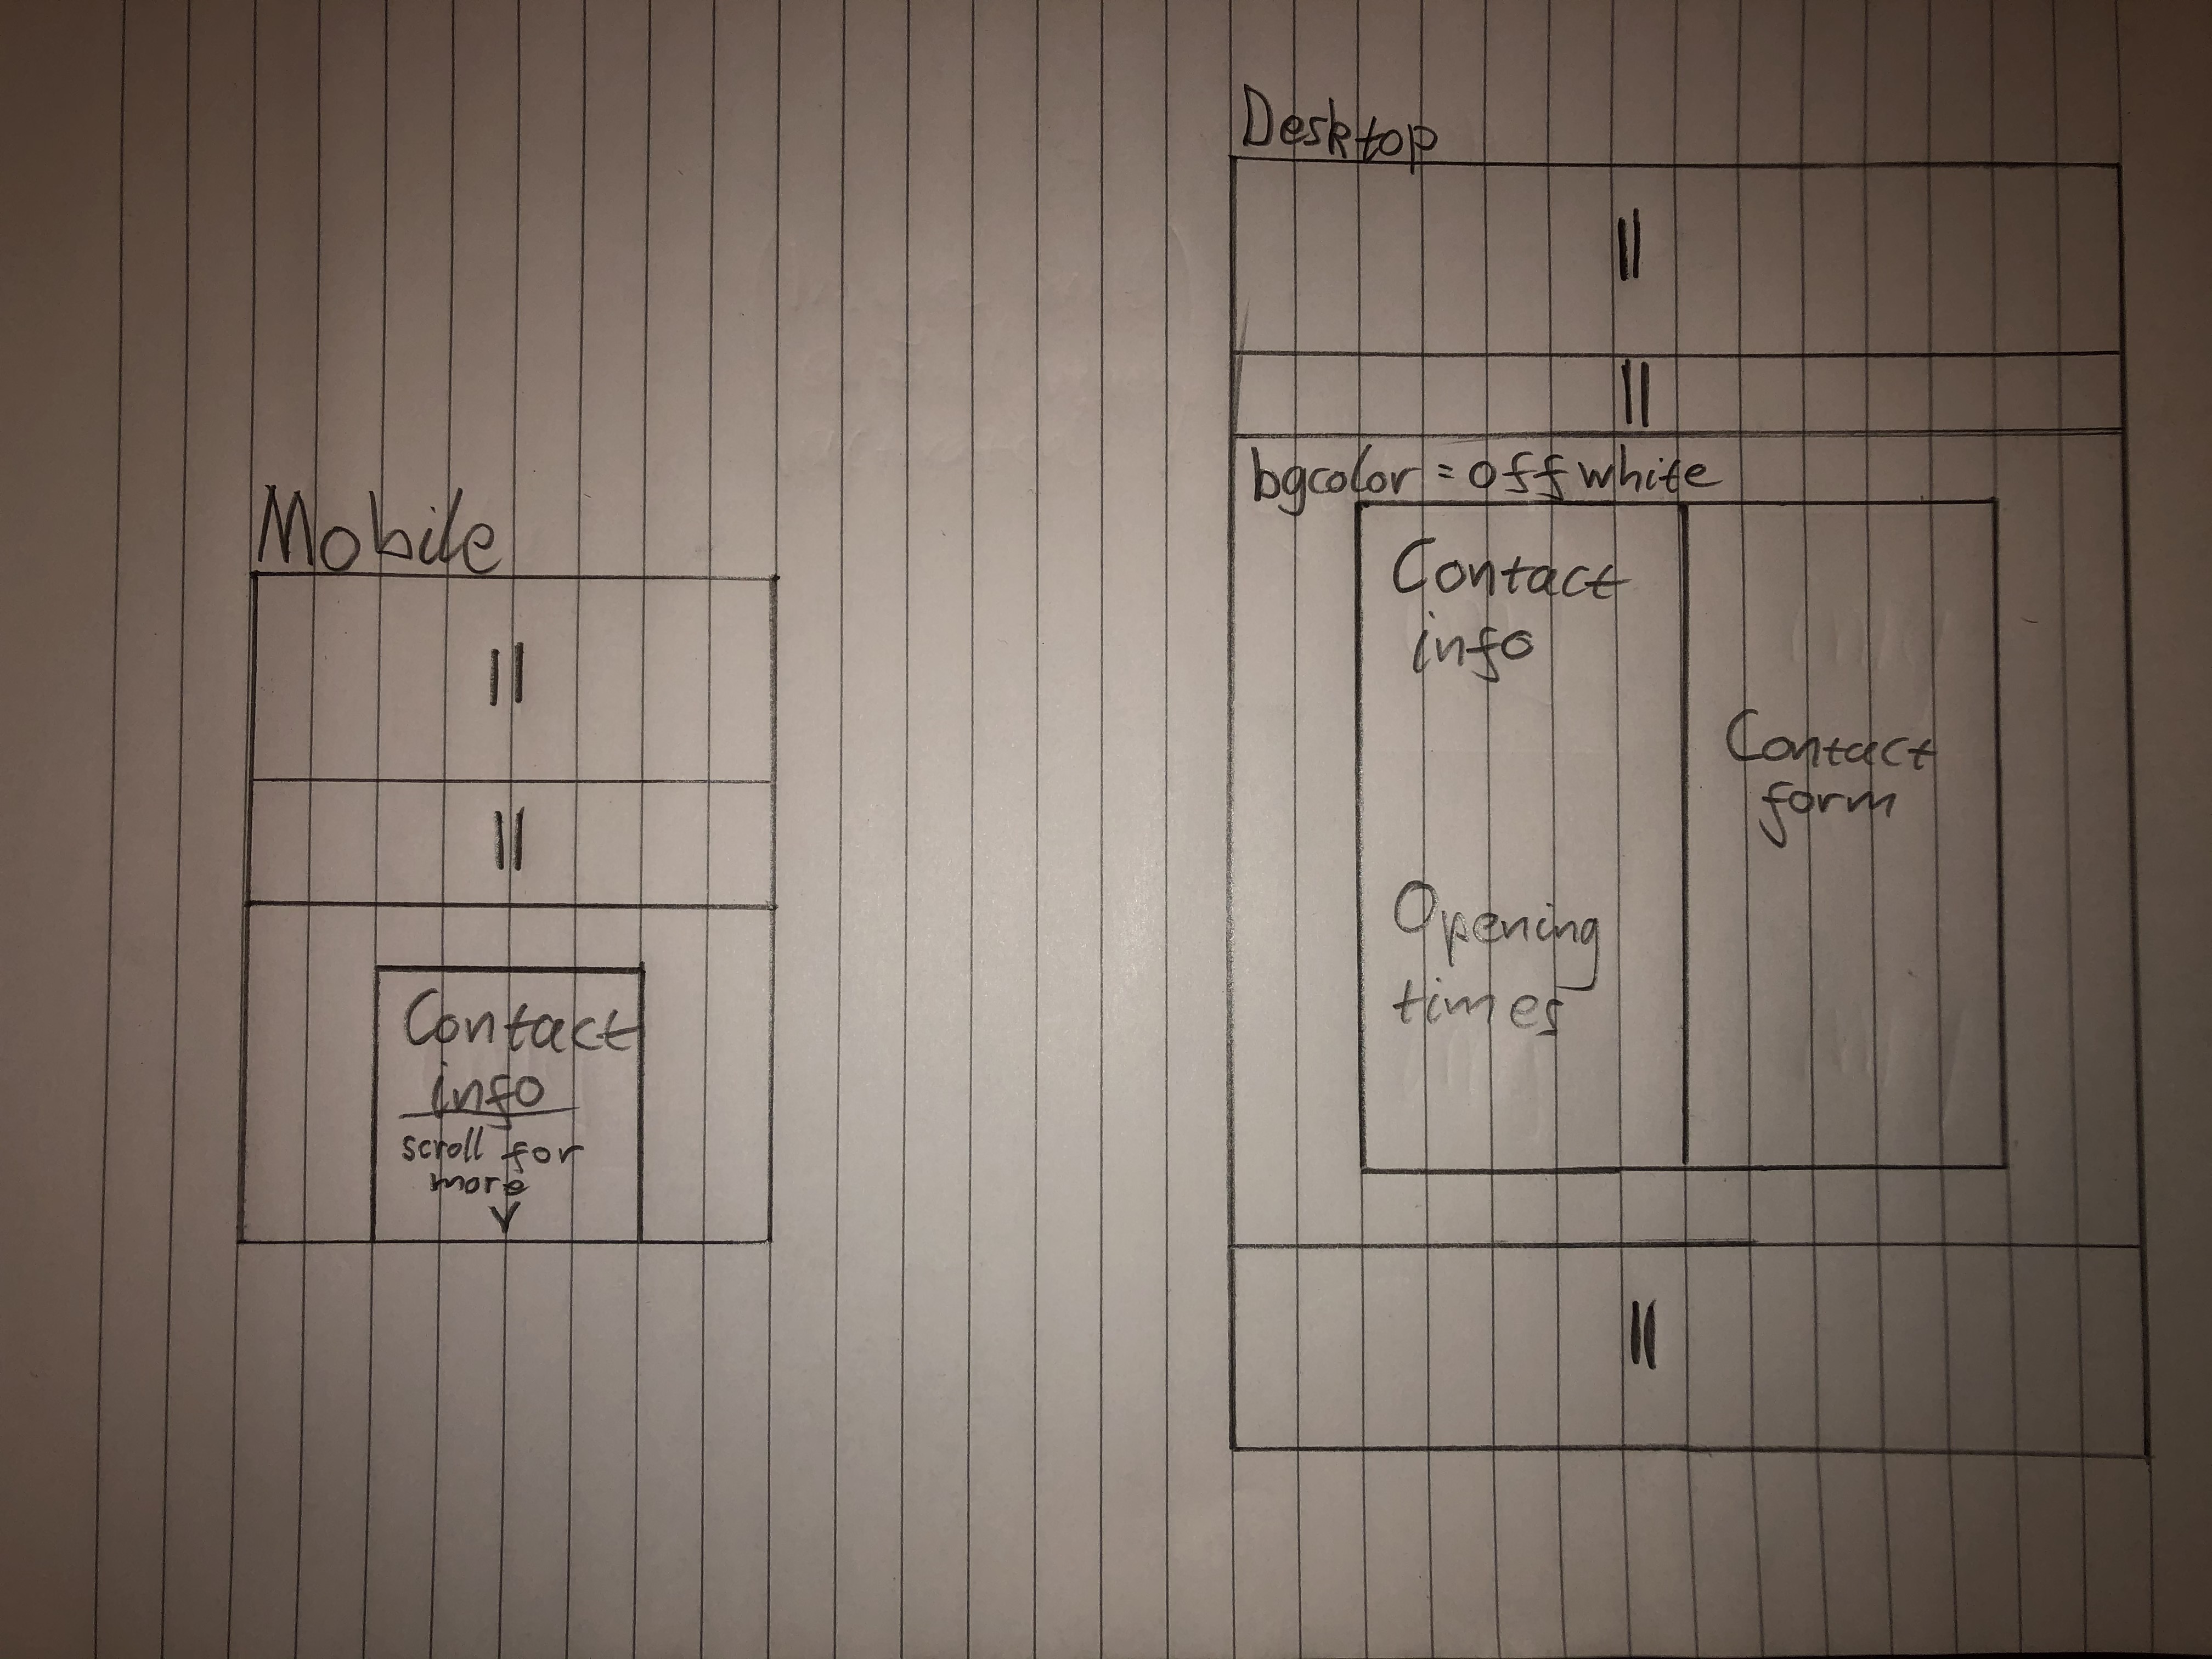 Mobile
=
=
Contact
info
scroll for
more
Desktop
=
=
bgcolor = off white
Contact
info
Opening
times
Contact
form
=